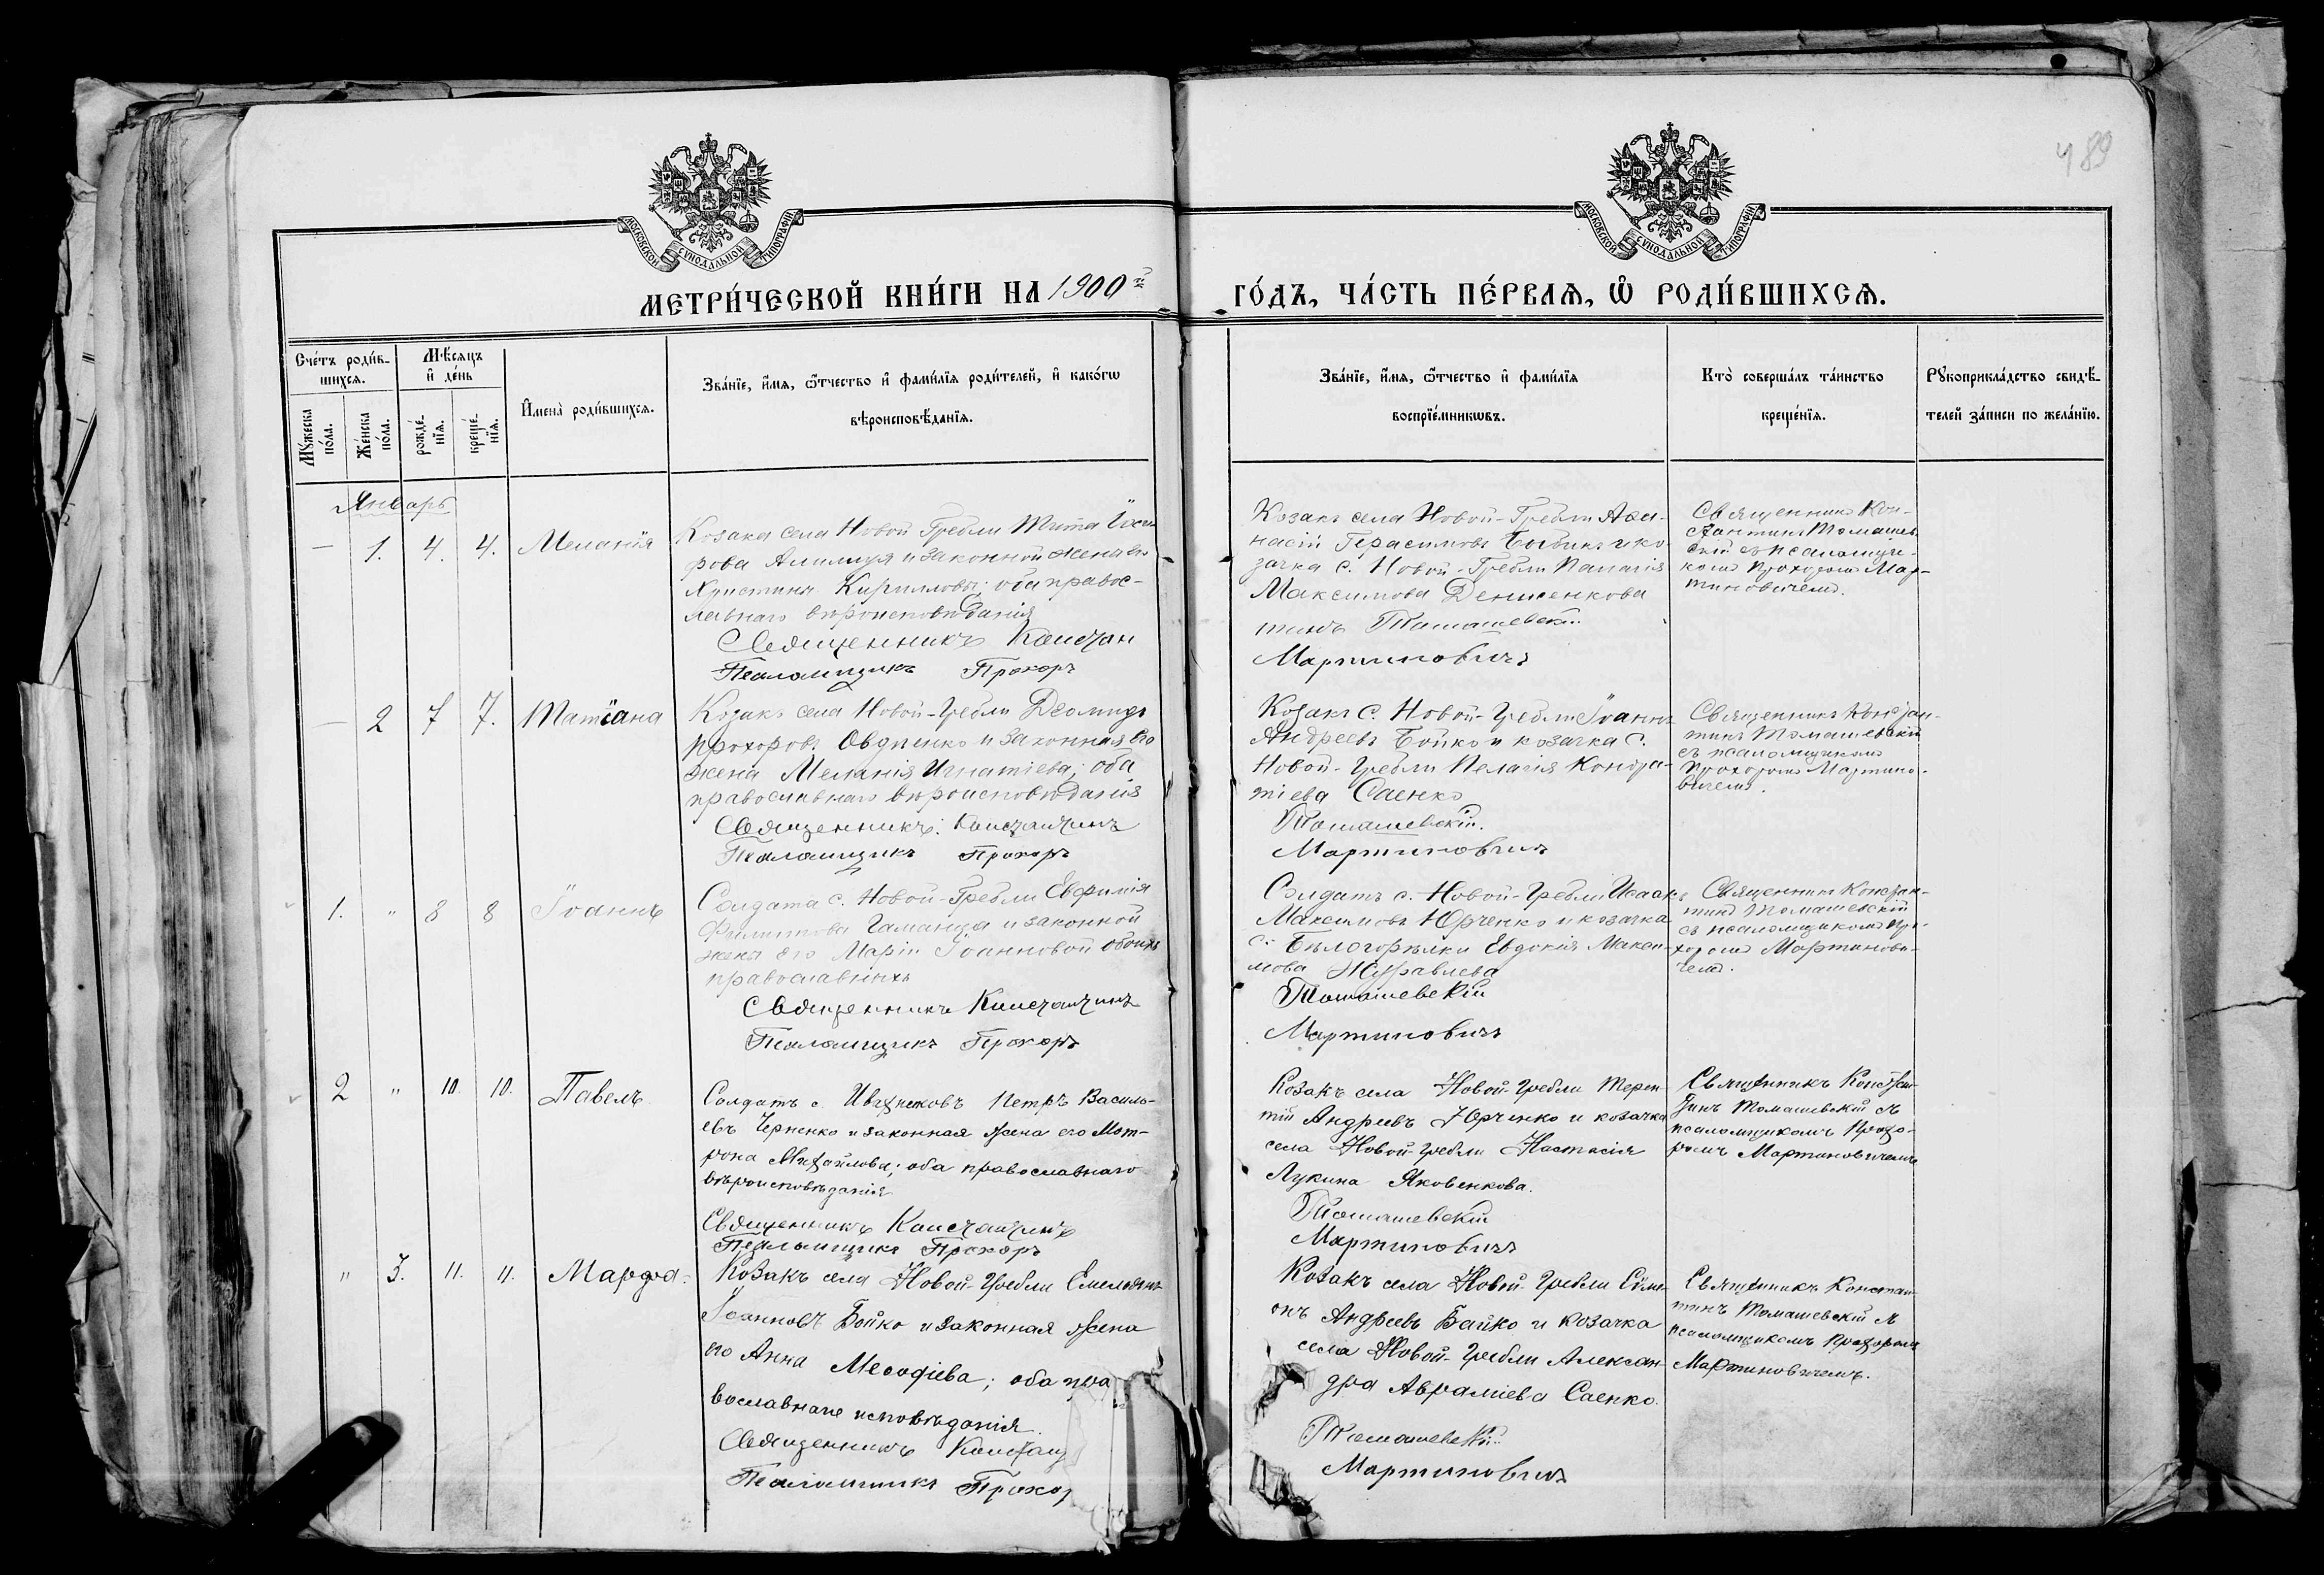 489
МОСКОВСКОЙ СѴНОДАЛЬНОЙ ТИПОГРАФІИ
МОСКОВСКОЙ СѴНОДАЛЬНОЙ ТИПОГРАФІИ
МЕТРИ́ЧЕСКОЙ КНИ́ГИ НА 1900й
ГО́ДЪ, ЧА́СТЬ ПЕ́РВАѦ, Ѽ РОДИ́ВШИХСѦ.
Сче́тъ роди́в-
шихсѧ.
Мѣ́сѧцъ
и҆ де́нь
Мꙋ́жеска
по́ла.
Же́нска
по́ла.
рожде́-
нїѧ.
креще́-
нїѧ.
И҆мена̀ роди́вшихсѧ.
Зва́нїе, и҆́мѧ, ѻ҆́тчество и҆ фами́лїѧ роди́телей, и҆ како́гѡ
вѣроисповѣ́данїѧ.
Зва́нїе, и҆́мѧ, ѻ҆́тчество и҆ фами́лїѧ
воспрїе́мникѡвъ.
Кто̀ соверша́лъ та́инство
креще́нїѧ.
Рꙋкоприкла́дство свидѣ́-
телей за́писи по жела́нїю.
Январь
— 1. 4. 4. Меланія
Козака села Новой Гребли Тита
рова и законной жены его
Христины Кирилловы; оба правос-
лавнаго вѣроисповѣданія
Священникъ Констан
Псаломщикъ Прохоръ
Козакъ села Новой-Гребли Аѳа-
насій Герасимовъ и ко-
зачка с. Новой-Гребли
Максимова Денисенкова
тинъ Томашевскій
Мартиновичъ
Священникъ Кон-
стантинъ Томашев-
скій съ псаломщи-
комъ Прохоромъ Мар-
тиновичемъ.
— 2 7 7. Татіана
Козакъ села Новой-Гребли Діомидъ
Прохоровъ и законная его
жена Меланія Игнатіева; оба
православнаго вѣроисповѣданія
Священникъ Константинъ
Псаломщикъ Прохоръ
Козакъ с. Новой-Гребли Іоаннъ
Андреевъ Бойко и козачка с.
Новой-Гребли Пелагія Кондра-
тіева Саенко
Томашевскій.
Мартиновичъ
Священникъ Констан-
тинъ Томашевскій
съ псаломщикомъ
Прохоромъ Мартино-
вичемъ.
1. " 8 8 Іоаннъ
Солдата с. Новой-Гребли Евфимія
Филиппова Гаманца и законной
жены его Маріи Іоанновой обоихъ
православныхъ
Священникъ Константинъ
Псаломщикъ Прохоръ
Солдатъ с. Новой-Гребли Исаакъ
Максимовъ Юрченко и козачка
с. Бѣлогорѣлки Евдокія Макси-
мова Журавлева
Томашевскій
Мартиновичъ
Священникъ Констан-
тинъ Томашевскій
съ псаломщикомъ Про-
хоромъ Мартинови-
чемъ.
2 " 10 10. Павелъ
Солдатъ с. Ивахнековъ Петръ Василь-
евъ Черненко и законная жена его Мот-
рона Михайлова; оба православнаго
вѣроисповѣданія
Священникъ Константинъ
Псаломщикъ Прохоръ
Козакъ села Новой-Гребли Терен-
тій Андреевъ Юрченко и козачка
села Новой-Гребли Настасія
Лукина Яковенкова.
Томашевскій
Мартиновичъ
Священникъ Констан-
тинъ Томашевскій съ
псаломщикомъ Прохо-
ромъ Мартиновичемъ
" 3. 11. 11. Марфа.
Козакъ села Новой-Гребли Емельянъ
Іоанновъ Бойко и законная жена
его Анна Меѳодіева; оба пра
вославнаго исповѣданія.
Священникъ Констан
Псаломщикъ Прохор
Козакъ села Новой-Гребли Сѵме-
онъ Андреевъ Бойко и козачка
села Новой-Гребли Алексан-
дра Аврамієва Саенко.
Томашевскій.
Мартиновичъ
Священникъ Констан
тинъ Томашевскій съ
псаломщикомъ Прохоромъ
Мартиновичемъ.